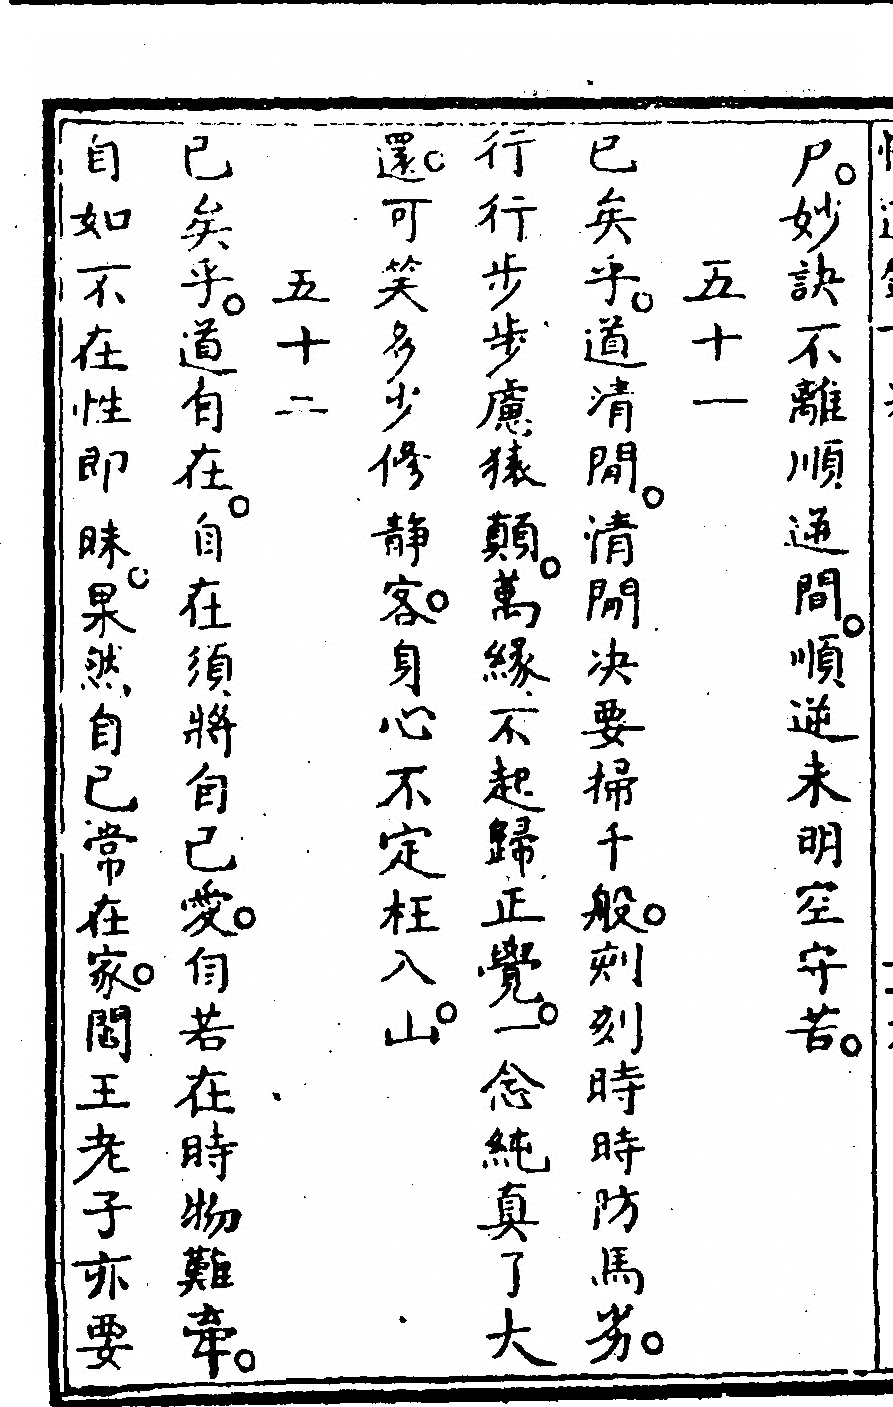 尸。妙訣不離順逆間。順逆未明空守苦。
五十一
已矣乎。道清閒。清閒决要掃千般。刻刻時時防馬劣。
行行步步慮猿顛。萬緣不起歸正覺。一念純真了大
還。可笑多少修靜客。身心不定枉入山。
五十二
已矣乎。道自在。自在須將自已愛。自若在時物難牽。
自如不在性即昧。果然自已常在家。閻王老子亦要